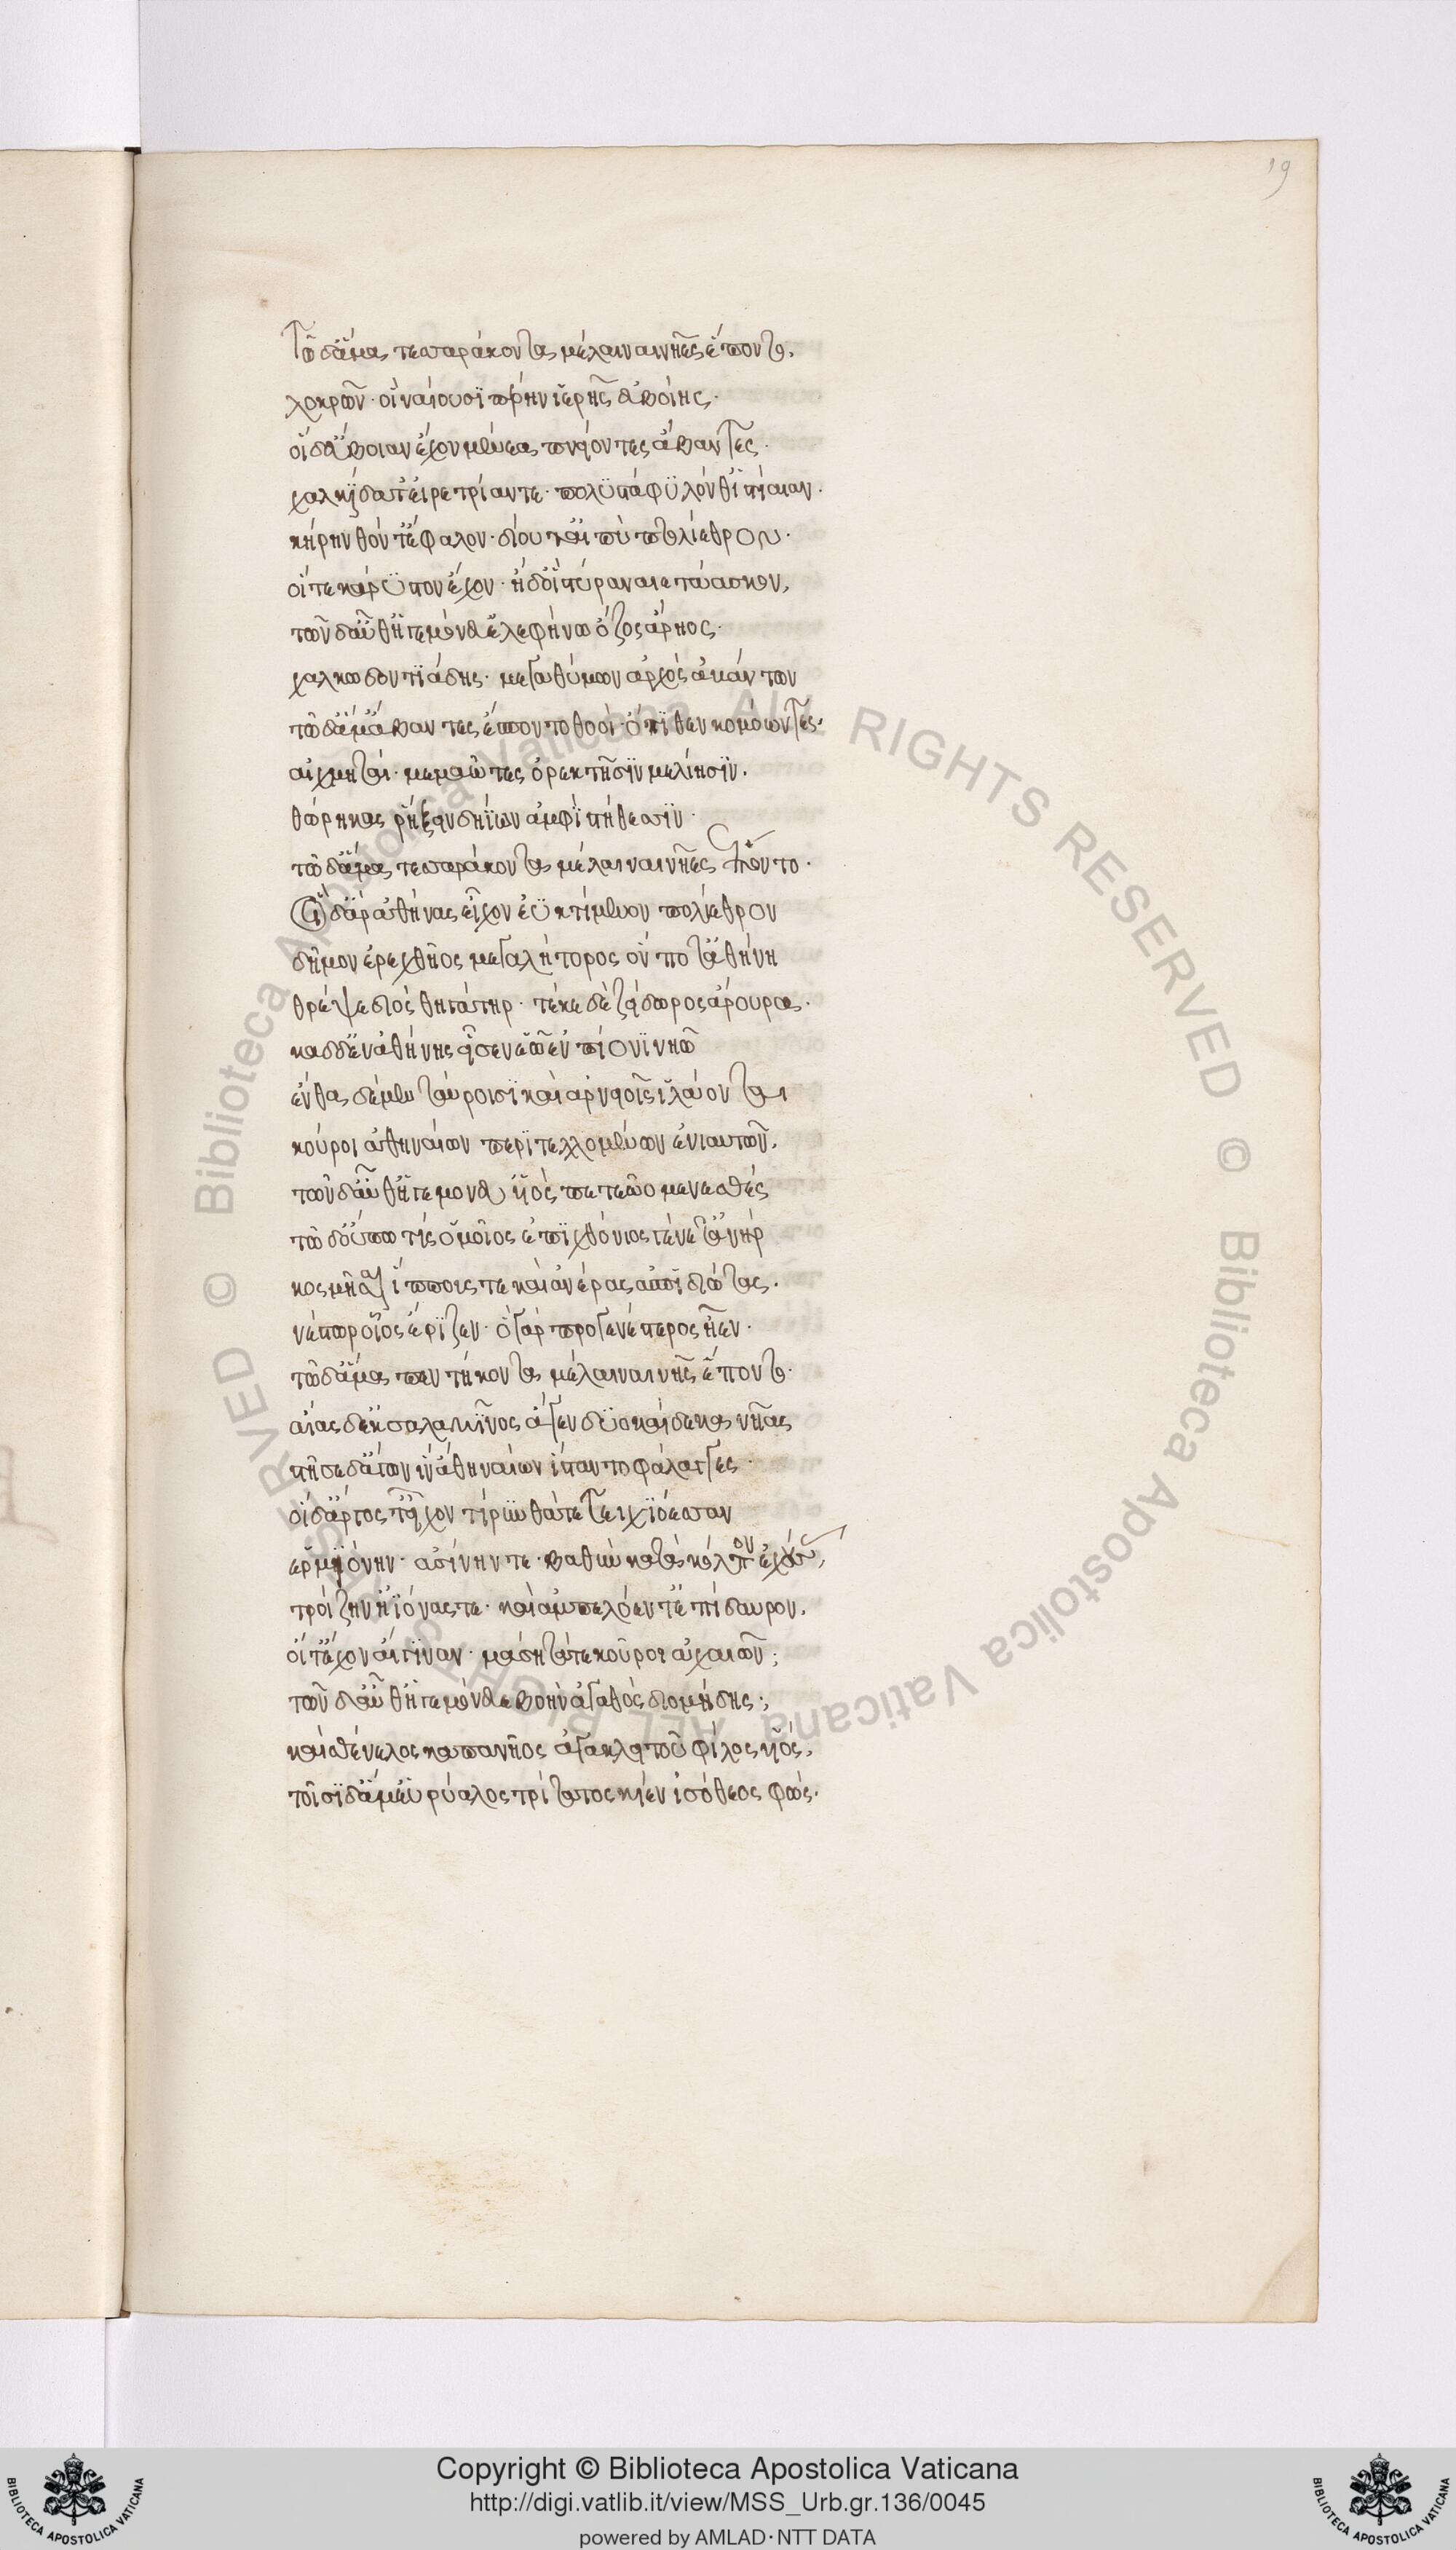 19
Τῶ δ' ἅμα τεσσαράκοντα μέλαιναι νῆες ἕποντο.
λοκρῶν· οἳ ναίουσϊ πέρην ϊερῆς εὐβοίης·
οἳ δ' εὔβοιαν ἔχον μένεα πνείοντες ἄβαντες·
χαλκίδα τ' εἰρετρίαν τε· πολυστάφϋλόν θ' ἱστίαιαν·
κήρηνθόν τ' ἔφαλον· δίου τ' αἰπὺ πτολίεθρον·
οἵ τε κάρϋστον ἔχον· ἠδ' οἳ στύρα ναιετάασκον,
τῶν δ' αὖθ' ἡγεμόνευ' ἐλεφήνωρ ὄζος ἄρηος·
χαλκωδοντϊάδης· μεγαθύμων ἀρχὸς ἀβάντων
τῶ δ' ἅμ' ἄβαντες ἕποντο θοοὶ· ὄπϊθεν κομόωντες·
αἰχμηταὶ· μεμαῶτες ὀρεκτῆσϊν μελίησϊν.
θώρηκας ῥήξειν δηΐων ἀμφὶ στήθεσσϊν·
τῶ δ' ἅμα τεσσαράκοντα μέλαιναι νῆες ἕποντο·
Οἳ δ' ἄρ' ἀθήνας εἶχον ἐϋκτίμενον πολίεθρον
δῆμον ἐρεχθῆος μεγαλήτορος ὅν ποτ' ἀθήνη
θρέψε διὸς θηγάτηρ· τέκε δὲ ζείδωρος ἄρουρα·
καδδ' ἐν ἀθήνης εἷσεν ἑῶ ἐν πίονϊ νηῶ
ἔνθα δέ μϊν ταύροισϊ καὶ ἀρνειοῖς ϊλάονται
κούροι ἀθηναίων περϊτελλομένων ἐνιαυτῶν.
τῶν δ' αὖθ' ἡγεμόνευ' υἱὸς πετεῶο μενεσθεύς
τῶ δ' οὔπω τὶς ὁμοῖος ἐπϊχθόνιος γένετ' ἀνήρ
κοςμῆσαι ἵππους τε καὶ ἀνέρας ἀσπϊδιώτας.
νέστωρ οἶος ἔρϊζεν· ὁ γὰρ προγενέστερος ἦεν·
τῶ δ' ἅμα πεντήκοντα μέλαιναι νῆες ἕποντο·
αἴας δ' ἐκ σαλαμῖνος ἄγεν δϋοκαίδεκα νῆας
στῆσε δ' ἄγων ἵν' ἀθηναίων ἵσταντο φάλαγγες·
οἳ δ' ἄργος τ' εἶχον τίρϋνθά τε τειχϊόεσσαν
ερμϊόνην· ἀσίνην τε· βαθὺν κατὰ κόλπον ἐχούσας,
τροίζην' ἠϊόνας τε· καὶ ἀμπελόεντ' ἐπίδαυρον.
οἵ τ' ἔχον αἴγϊναν· μάσητά τε κοῦροι ἀχαιῶν;
τῶν δ' αὖθ' ἡγεμόνευε βοὴν ἀγαθὸς διομήδης·;
καὶ σθένελος καπανῆος ἀγακλειτοῦ φίλος υἱός.
τοῖσϊ δ' ἅμ' εὐρύαλος τρίτατος κίεν ἰσόθεος φώς.
© Biblioteca Apostolica Vaticana ALL RIGHTS RESERVED © Biblioteca Apostolica Vaticana ALL RIGHTS RESERVED
Copyright © Biblioteca Apostolica Vaticana
http://digi.vatlib.it/view/MSS_Urb.gr.136/0045
powered by AMLAD·NTT DATA
BIBLIOTECA APOSTOLICA VATICANA
BIBLIOTECA APOSTOLICA VATICANA